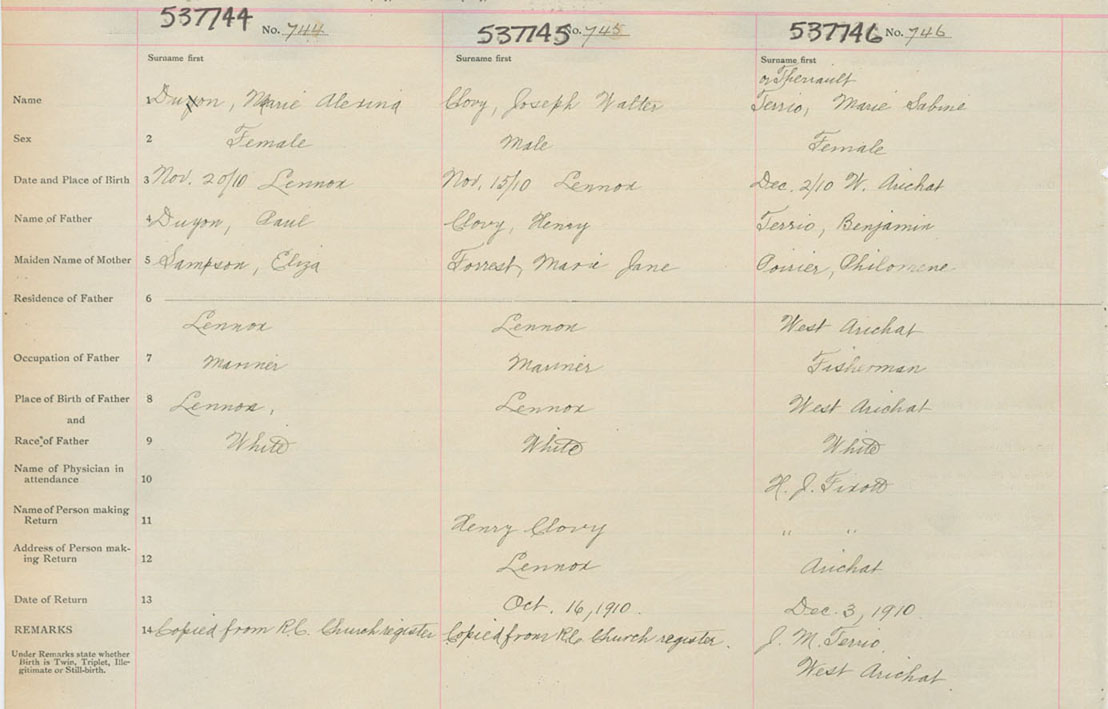 537744 No. 744 537745 No. 745 537746 No. 746
Surname first Surname first Surname first
or Theriault
Name 1 Duyon, Marie Alexina Clovy, Joseph Walter Terrio, Marie Sabine
Sex 2 Female Male Female
Date and Place of Birth 3 Nov. 20/10 Lennox Nov. 15/10 Lennox Dec. 2/10 W. Arichat
Name of Father 4 Duyon, Paul Clovy, Henry Terrio, Benjamin
Maiden Name of Mother 5 Sampson, Eliza Forrest, Marie Jane Poirier, Philomene
Residence of Father 6
Lennox Lennox West Arichat
Occupation of Father 7 Mariner Mariner Fisherman
Place of Birth of Father 8 Lennox, Lennox West Arichat
and
Race of Father 9 White White White
Name of Physician in
attendance 10 H. J. Fixott
Name of Person making
Return 11 Henry Clovy " "
Address of Person mak-
ing Return 12 Lennox Arichat
Date of Return 13 Oct. 16, 1910. Dec. 3, 1910
REMARKS 14 Copied from R.C. Church register Copied from R.C. Church register. J. M. Terrio
Under Remarks state whether
Birth is Twin, Triplet, Ille-
gitimate or Still-birth. West Arichat